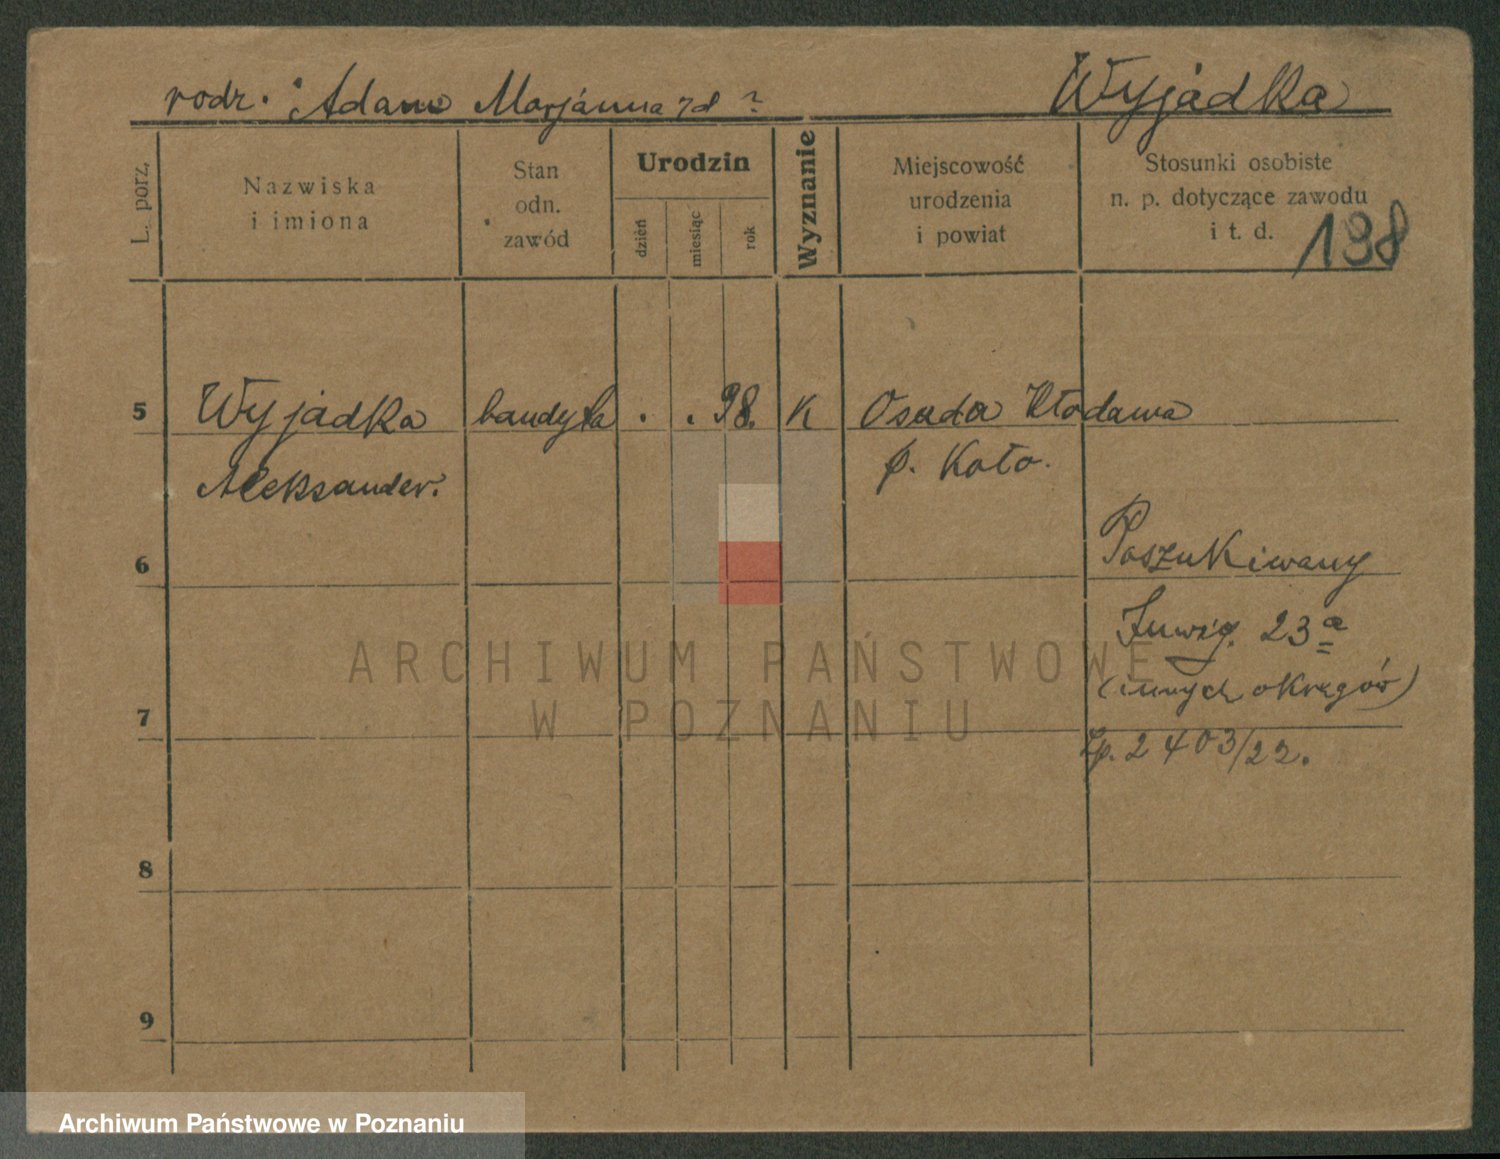 rodz. Adam Marjanna zd ? Wyjádka
L. porz.
Nazwiska
i imiona
Stan
odn.
zawód
Urodzin
dzień
miesiąc
rok
Wyznanie
Miejscowość
urodzenia
i powiat
Stosunki osobiste
n. p. dotyczące zawodu
i t. d.
198
5 Wyjádka bandyta . . 98. K Osada Kłodawa
Aleksander. p. Koło.
6 Poszukiwany
23 a
(innych okręgów)
7
Lp. 2403/22.
8
9
ARCHIWUM PAŃSTWOWE
W POZNANIU
Archiwum Państwowe w Poznaniu